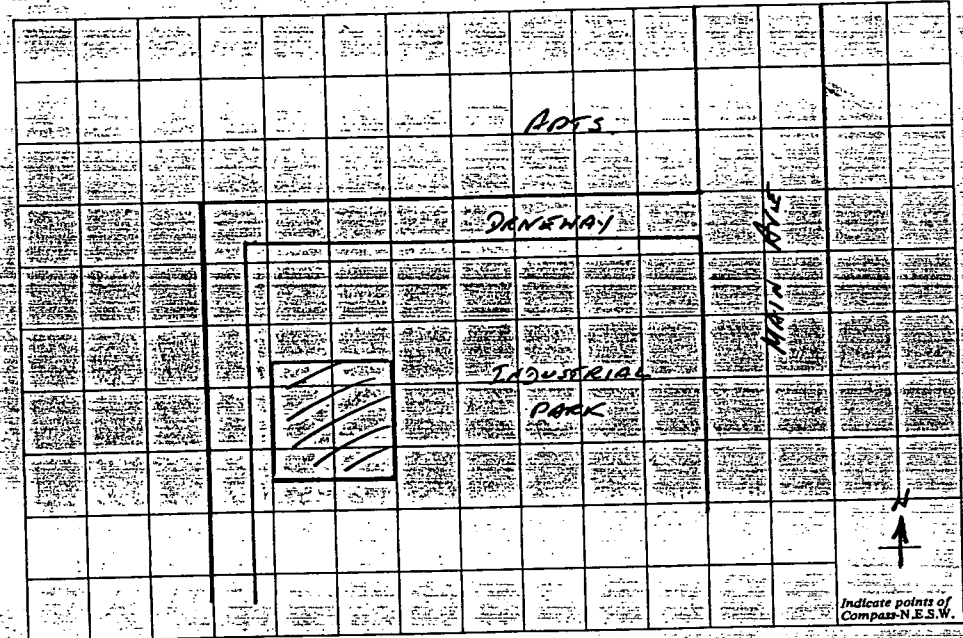 APTS
DRIVEWAY
MAIN AVE
INDUSTRIAL
PARK
N
Indicate points of
Compass-N.E.S.W.